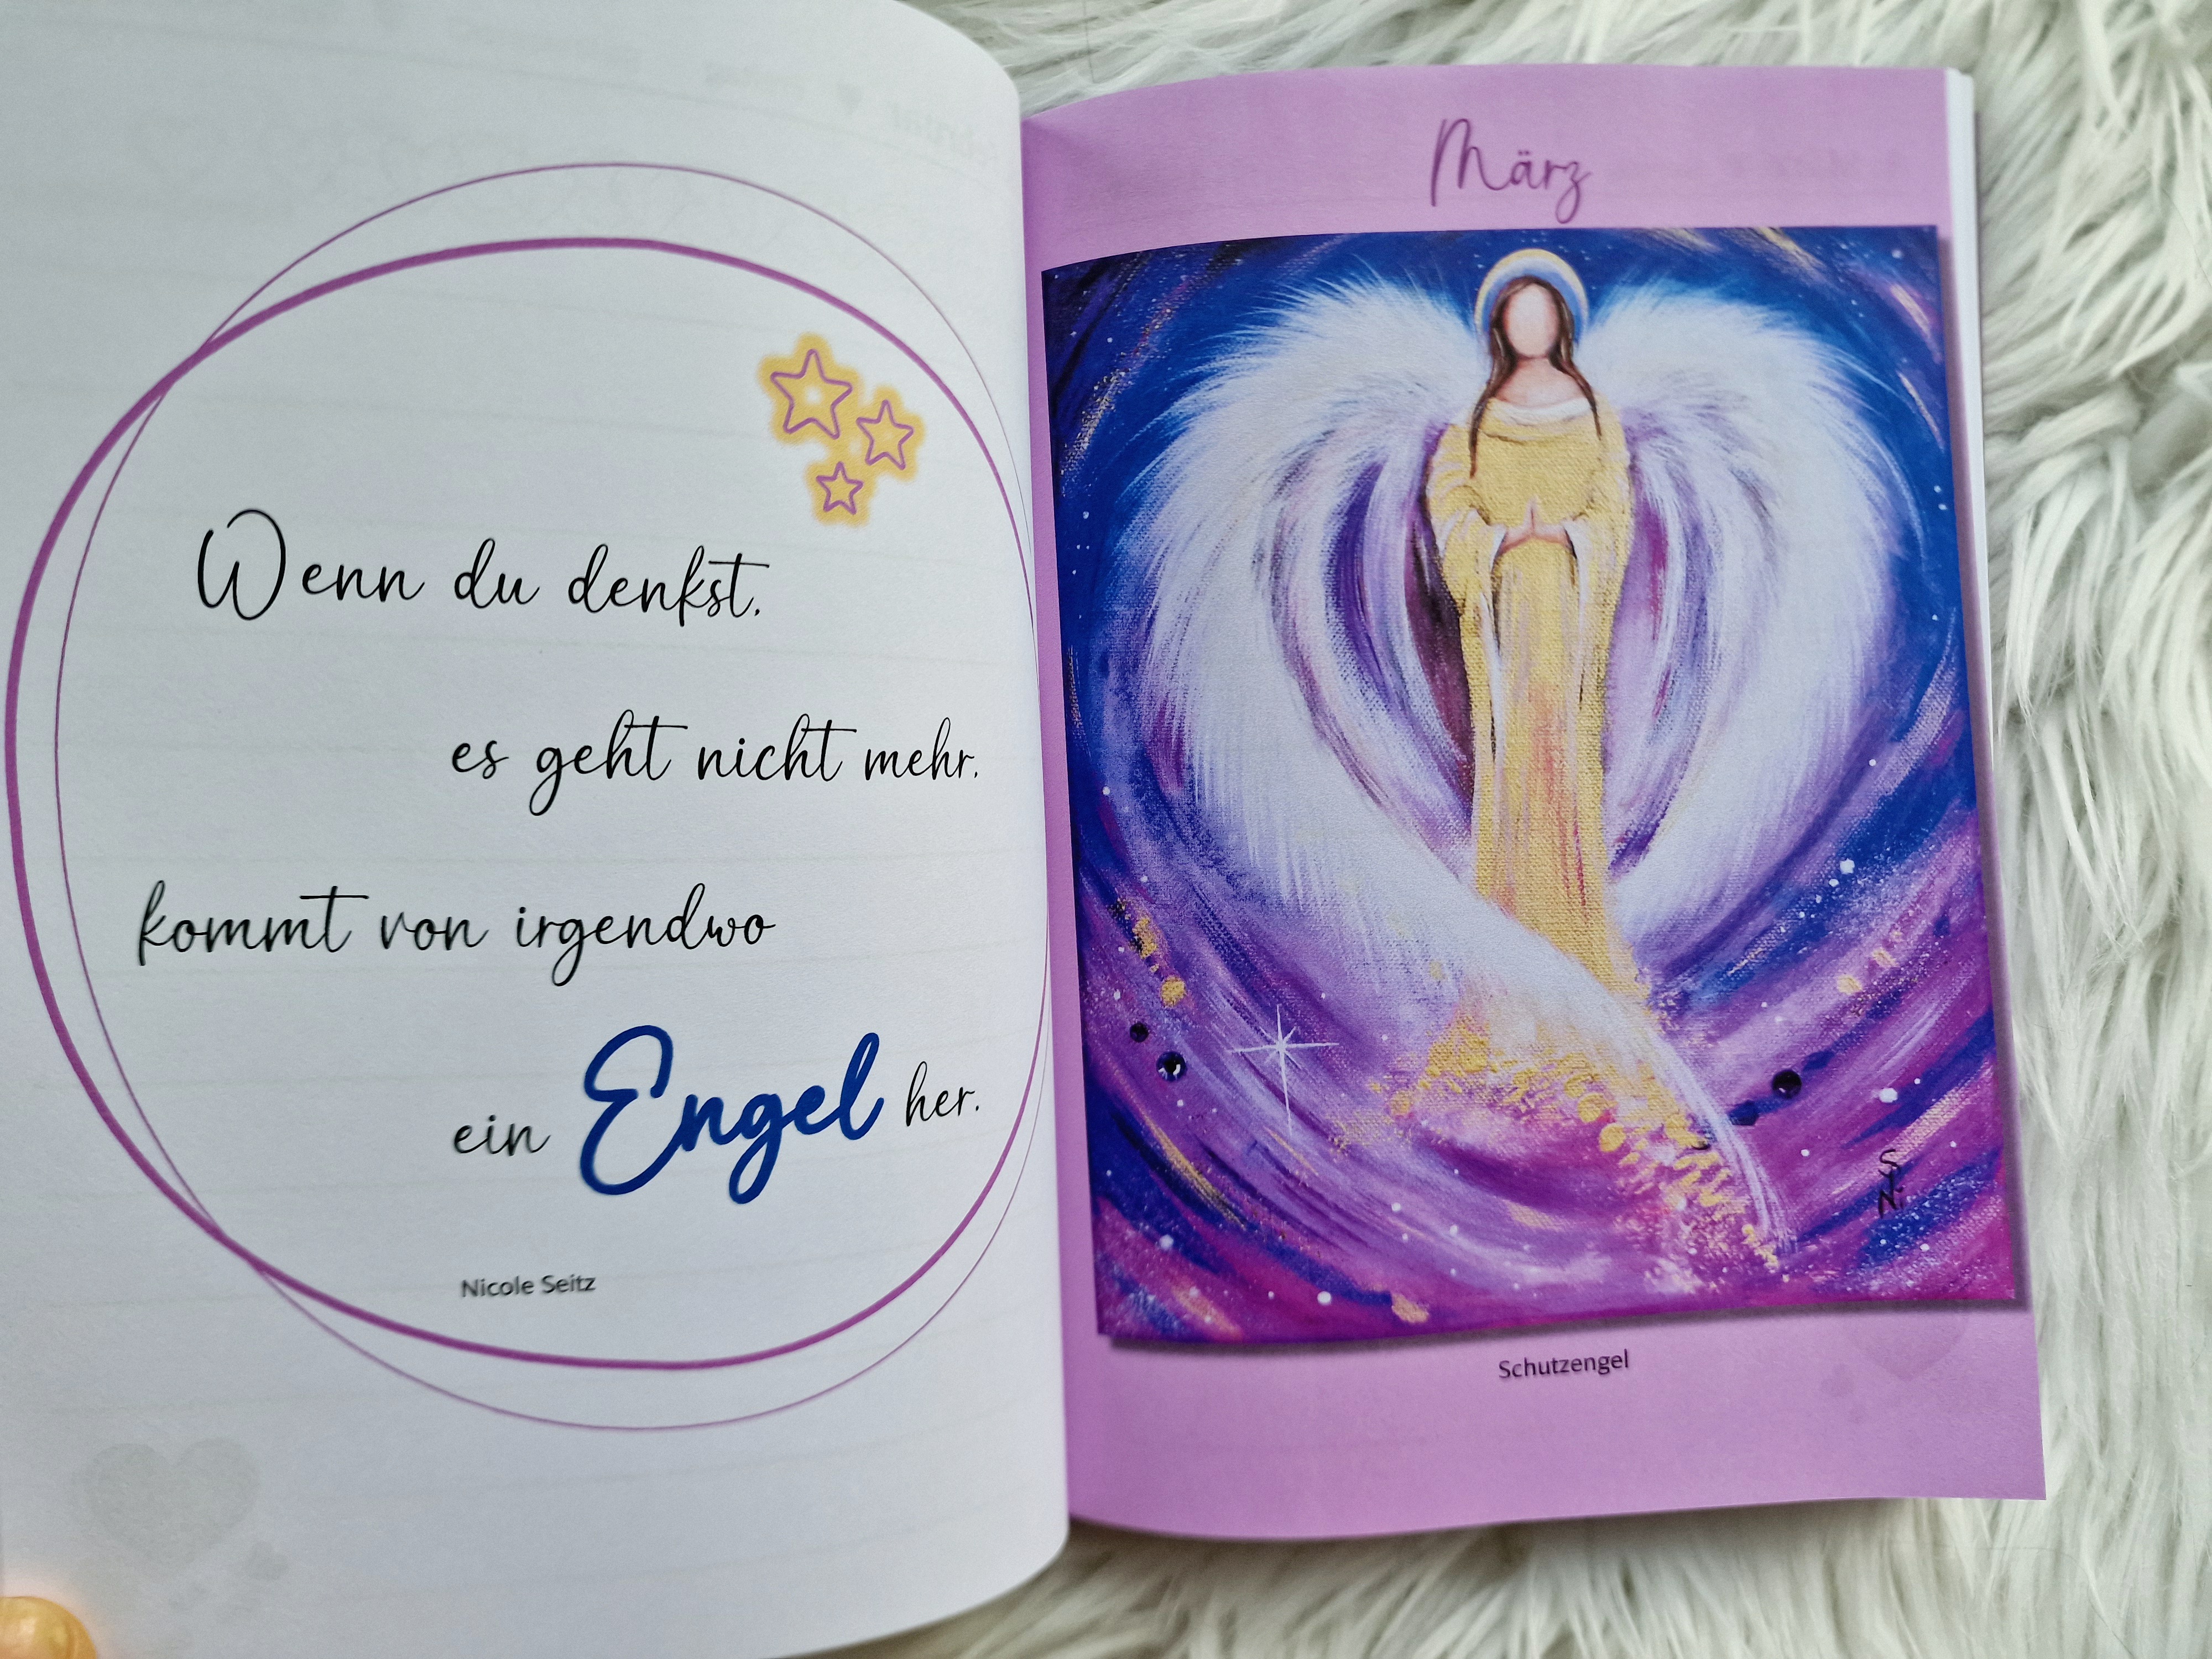 Wenn du denkst,
es geht nicht mehr,
kommt von irgendwo
ein Engel her.
Nicole Seitz
März
S.
N.
Schutzengel